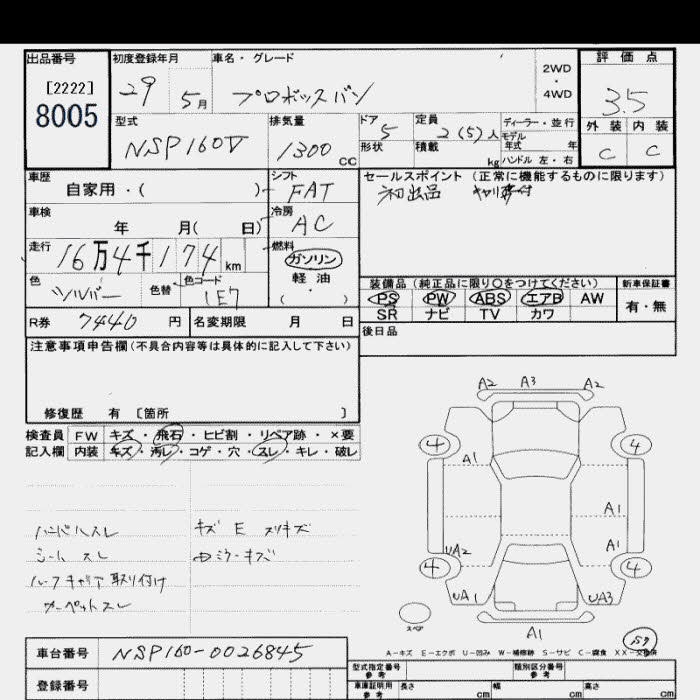 出品番号 初度登録年月 車名・グレード 評価点
[2222]
8005
29 5月 プロボックスバン 2WD・4WD 3.5
外装 内装
C C
型式 排気量 ドア 定員 ディーラー・並行
NSP160V 1300CC 5 2(5)人 モデル年式 年
形状 積載 kg ハンドル 左・右
車歴 シフト セールスポイント(正常に機能するものに限ります)
自家用・( ) FAT 初出品
車検 冷房
年 月( 日) AC
走行 燃料
16万4千174km ガソリン
軽油
・( )
色 色替 色コード
シルバー 1E7
装備品(純正品に限り○をつけてください) 新車保証書
PS PW ABS エアB AW 有・無
SR ナビ TV カワ
R券 7440円 名変期限 月 日
後日品
注意事項申告欄(不具合内容等は具体的に記入して下さい)
修復歴 有 [箇所 ]
検査員記入欄
FW キズ・飛石・ヒビ割・リペア跡・×要
内装 キズ・汚レ・コゲ・穴・スレ・キレ・破レ
ハンドルスレ キズ E スリキズ
シートスレ 内ミラーキズ
ルーフキャリア取り付け
カーペットスレ
A2 A3 A2
4 4
A1
A1
UA2 A1
4 4
UA1 UA3
A1
スペア
A-キズ E-エクボ U-凹み W-補修跡 S-サビ C-腐食 XX-交換済
車台番号 NSP160-0026845
登録番号
型式指定番号 参考 類別区分番号 参考
車庫証明用 参考 長さ cm 幅 cm 高さ cm